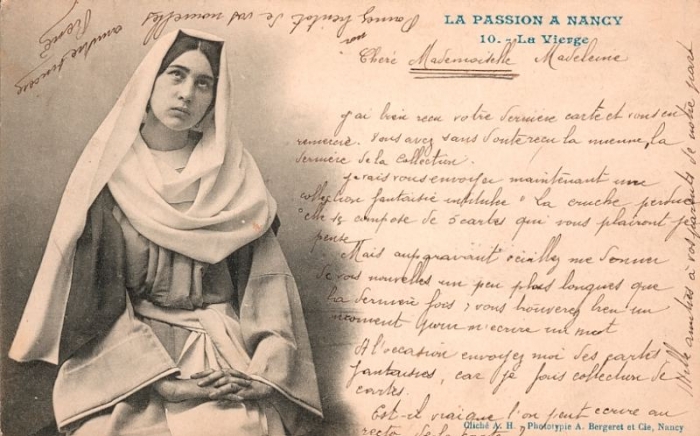 LA PASSION A NANCY
10. - La Vierge
Cheré Mademoiselle Madeleine
J'ai bien recu votre dernière carte et vous en
remercie. Vous avez sans doute recu la mienne, la
dernière de la Collection.
Je vais vous envoyer maintenant une
collection fantaisie intitulée "La cruche perdue"
Elle se compose de 5 cartes qui vous plairont je
pense
Mais auparavant veuillez me donner
de vos nouvelles un peu plus longues que
la dernière fois; vous trouverez bien un
moment pour m'écrire un mot
A l'occasion envoyez moi des cartes
fantaisies, car je fais collection de
cartes.
Est-il vrai que l'on peut ecrire au
recto de la carte?
Cliché A. H. Phototypie A. Bergeret et Cie, Nancy
Mille amitiés à vos parents de notre part
Donnez bientot de vos nouvelles
René